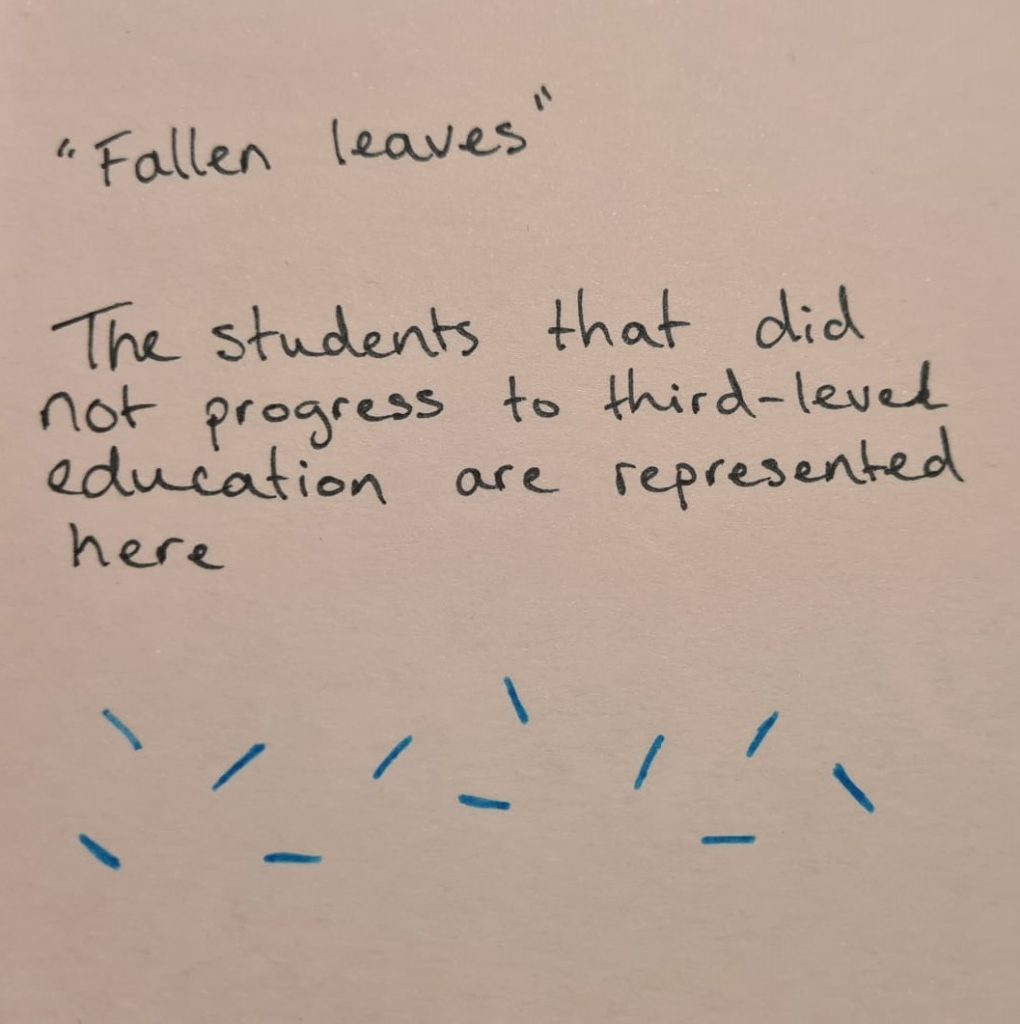 "Fallen leaves"
The students that did
not progress to third-level
education are represented
here